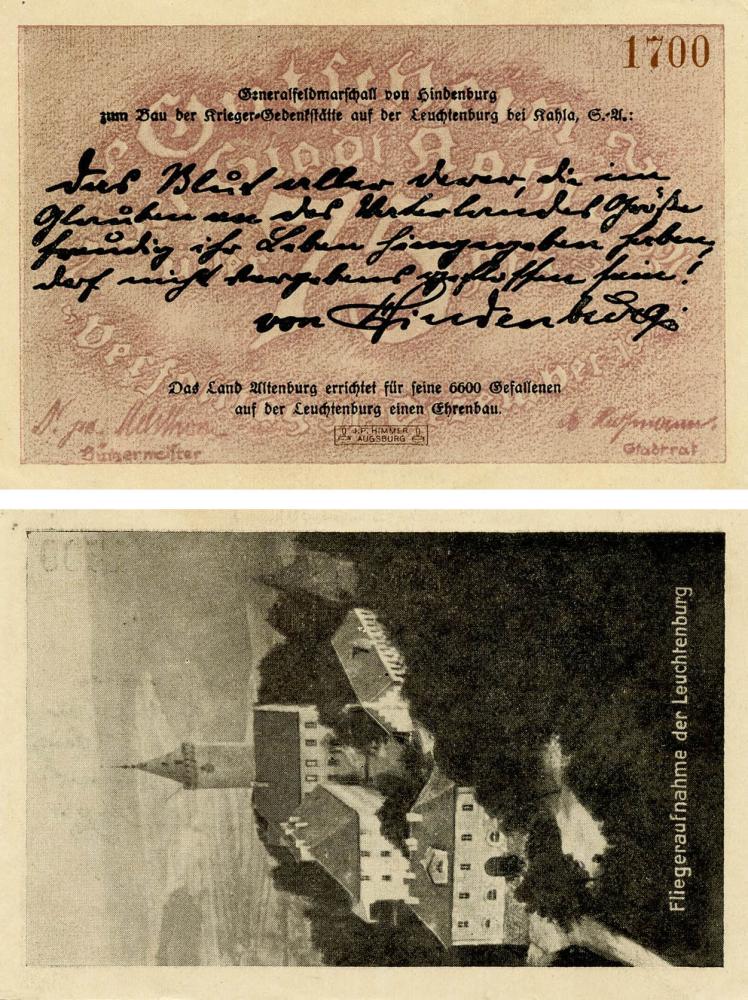 1700
Generalfeldmarschall von Hindenburg
zum Bau der Krieger-Gedenkstätte auf der Leuchtenburg bei Kahla, S.-A.:
Das Blut aller derer, die im
Glauben an des Vaterlandes Größe
freudig ihr Leben hingegeben haben,
darf nicht vergebens geflossen sein!
von Hindenburg
75
Das Land Altenburg errichtet für seine 6600 Gefallenen
auf der Leuchtenburg einen Ehrenbau.
J.P. HIMMER
AUGSBURG
Bürgermeister
Stadtrat
Fliegeraufnahme der Leuchtenburg